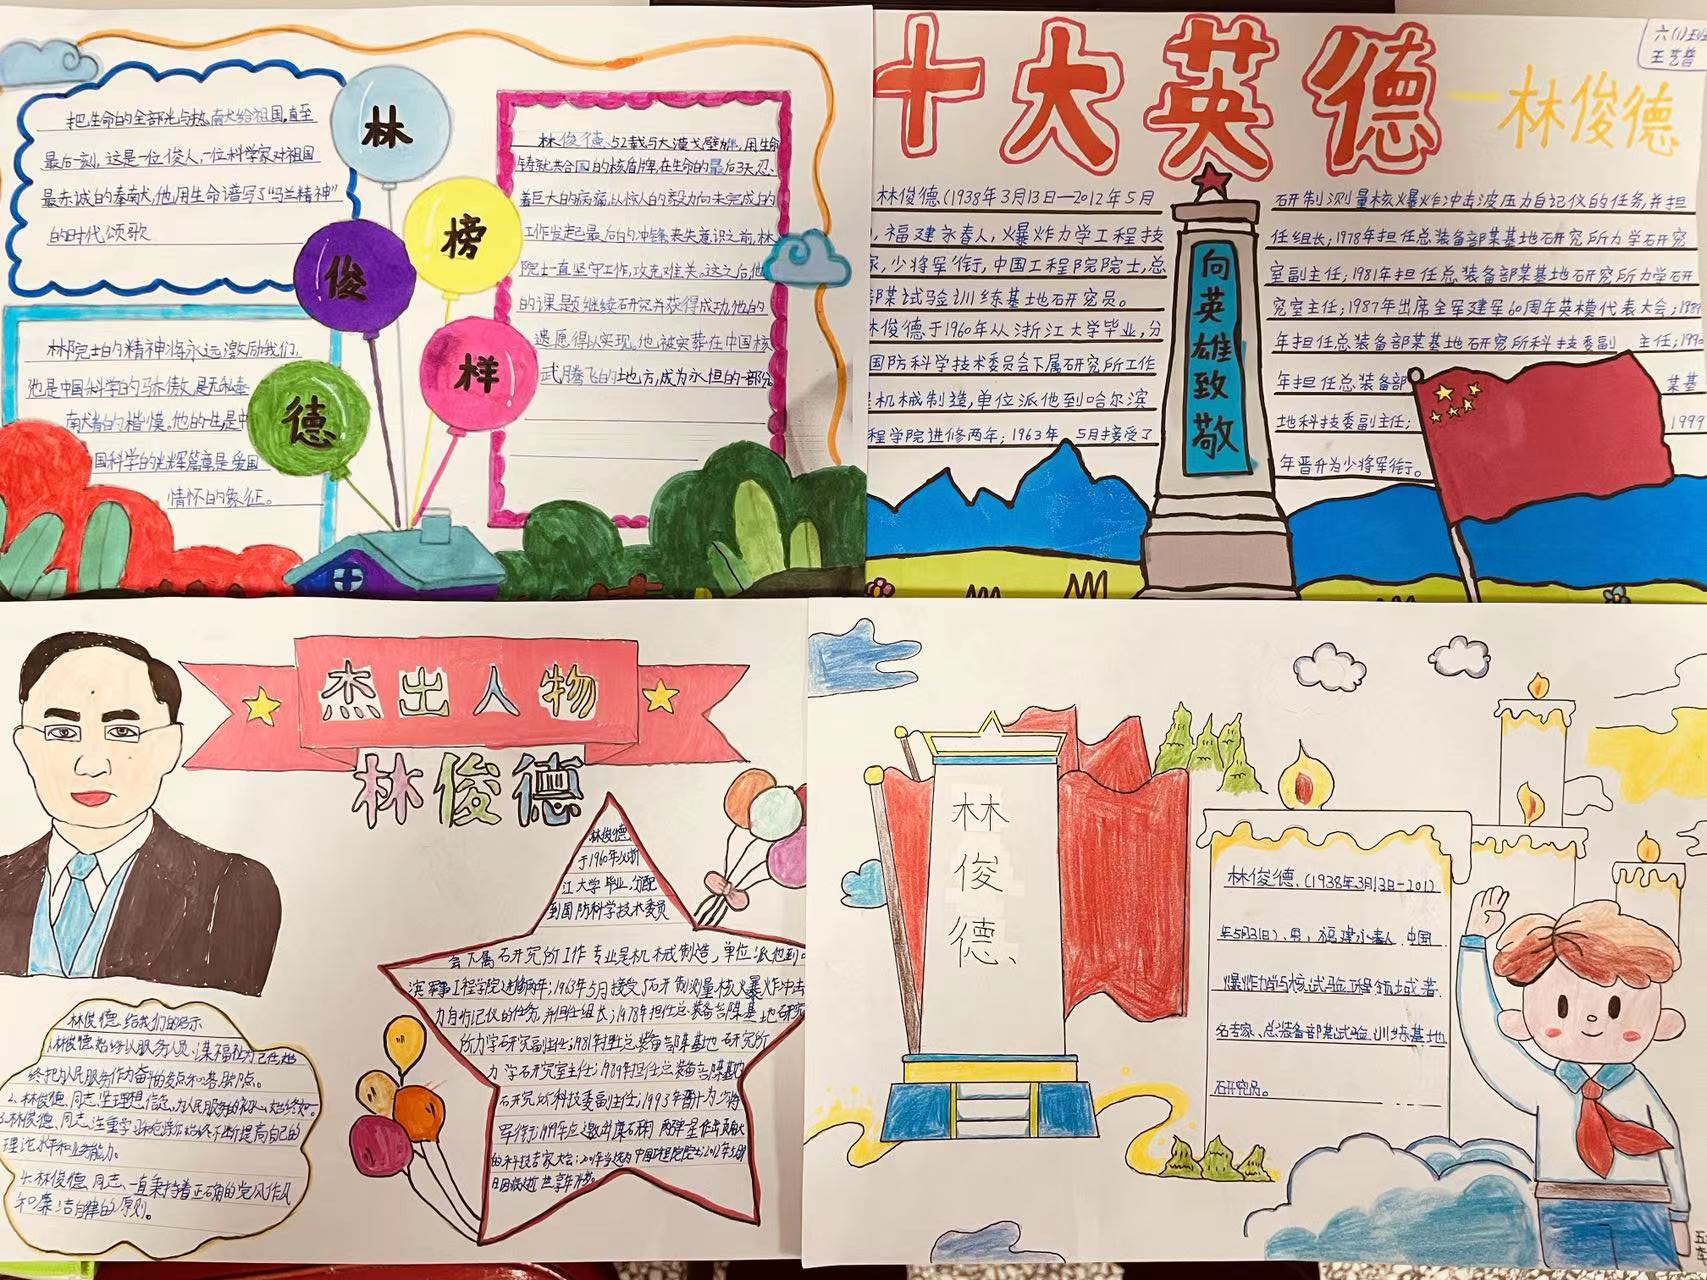 林
俊
德
榜
样
把生命的全部光与热,献给祖国,直至
最后一刻,这是一位俊人,一位科学家对祖国
最赤诚的奉献,他用生命谱写了“马兰精神”
的时代颂歌
林院士的精神将永远激励我们,
他是中国科学的骄傲,是无私奉
献者的楷模。他的一生是中
国科学的光辉篇章是爱国
情怀的象征。
林俊德,52载与大漠戈壁
铸就共合国的核盾牌,在生命的最后3天,忍
着巨大的病痛,以惊人的毅力向未完成的
工作发起最后的冲锋,来失意识之前,林
院士一直坚守工作,攻克难关。这之后,他
的课题继续研究并获得成功,他的
遗愿得以实现,他被安葬在中国核
武腾飞的地方,成为永恒的一部分
十大英德
一林俊德
六(1)班
王艺普
林俊德(1938年3月13日—2012年5月
,福建永春人,爆炸力学工程技
家,少将军衔,中国工程院院士,总
部某试验训练基地研究员。
林俊德于1960年从浙江大学毕业,分
国防科学技术委员会下属研究所工作
机械制造,单位派他到哈尔滨
程学院进修两年;1963年 5月接受了
向英雄致敬
研制测量核爆炸冲击波压力自记仪的任务,并担
任组长;1978年担任总装备部某基地研究所力学研究
室副主任;1981年担任总装备部某基地研究所力学研
究室主任;1987年出席全军建军60周年英模代表大会;
年担任总装备部某基地研究所科技委副 主任;
年担任总装备部 某基
地科技委副主任; 1999
年晋升为少将军衔。
杰出人物
林俊德
林俊德
于1960年从浙
江大学毕业,分配
到国防科学技术委员
会下属研究所工作专业是机械制造,单位派他到
滨军事工程学院进修两年;1963年5月接受了研制测量核爆炸冲击
力自记仪的任务,并担任组长;1978年担任总装备部某基地研究
所力学研究副主任;1981年担任总装备部某基地研究所
力学研究室主任;1989年担任总装备部某基地
研究所科技委副主任;1993年晋升为少将
军衔;1999年应邀出席研制两弹一星作出贡献
的科技专家大会;
林俊德给我们的启示
终把为人民服务作为奋斗的支点和落脚点。
2.林俊德同志坚理想信念,为人民服务的初心
3.林俊德同志注重学习和创新,始终不断提高自己的
理论水平和业务能力。
4.林俊德同志一直秉持着正确的党风作风
和廉洁自律的原则。
林
俊
德
林俊德、(1938年3月13日-2012
年5月31日)、男,福建永春人.中国
爆炸力学与核试验工程领域著
名专家、总装备部某试验训练基地
研究员。